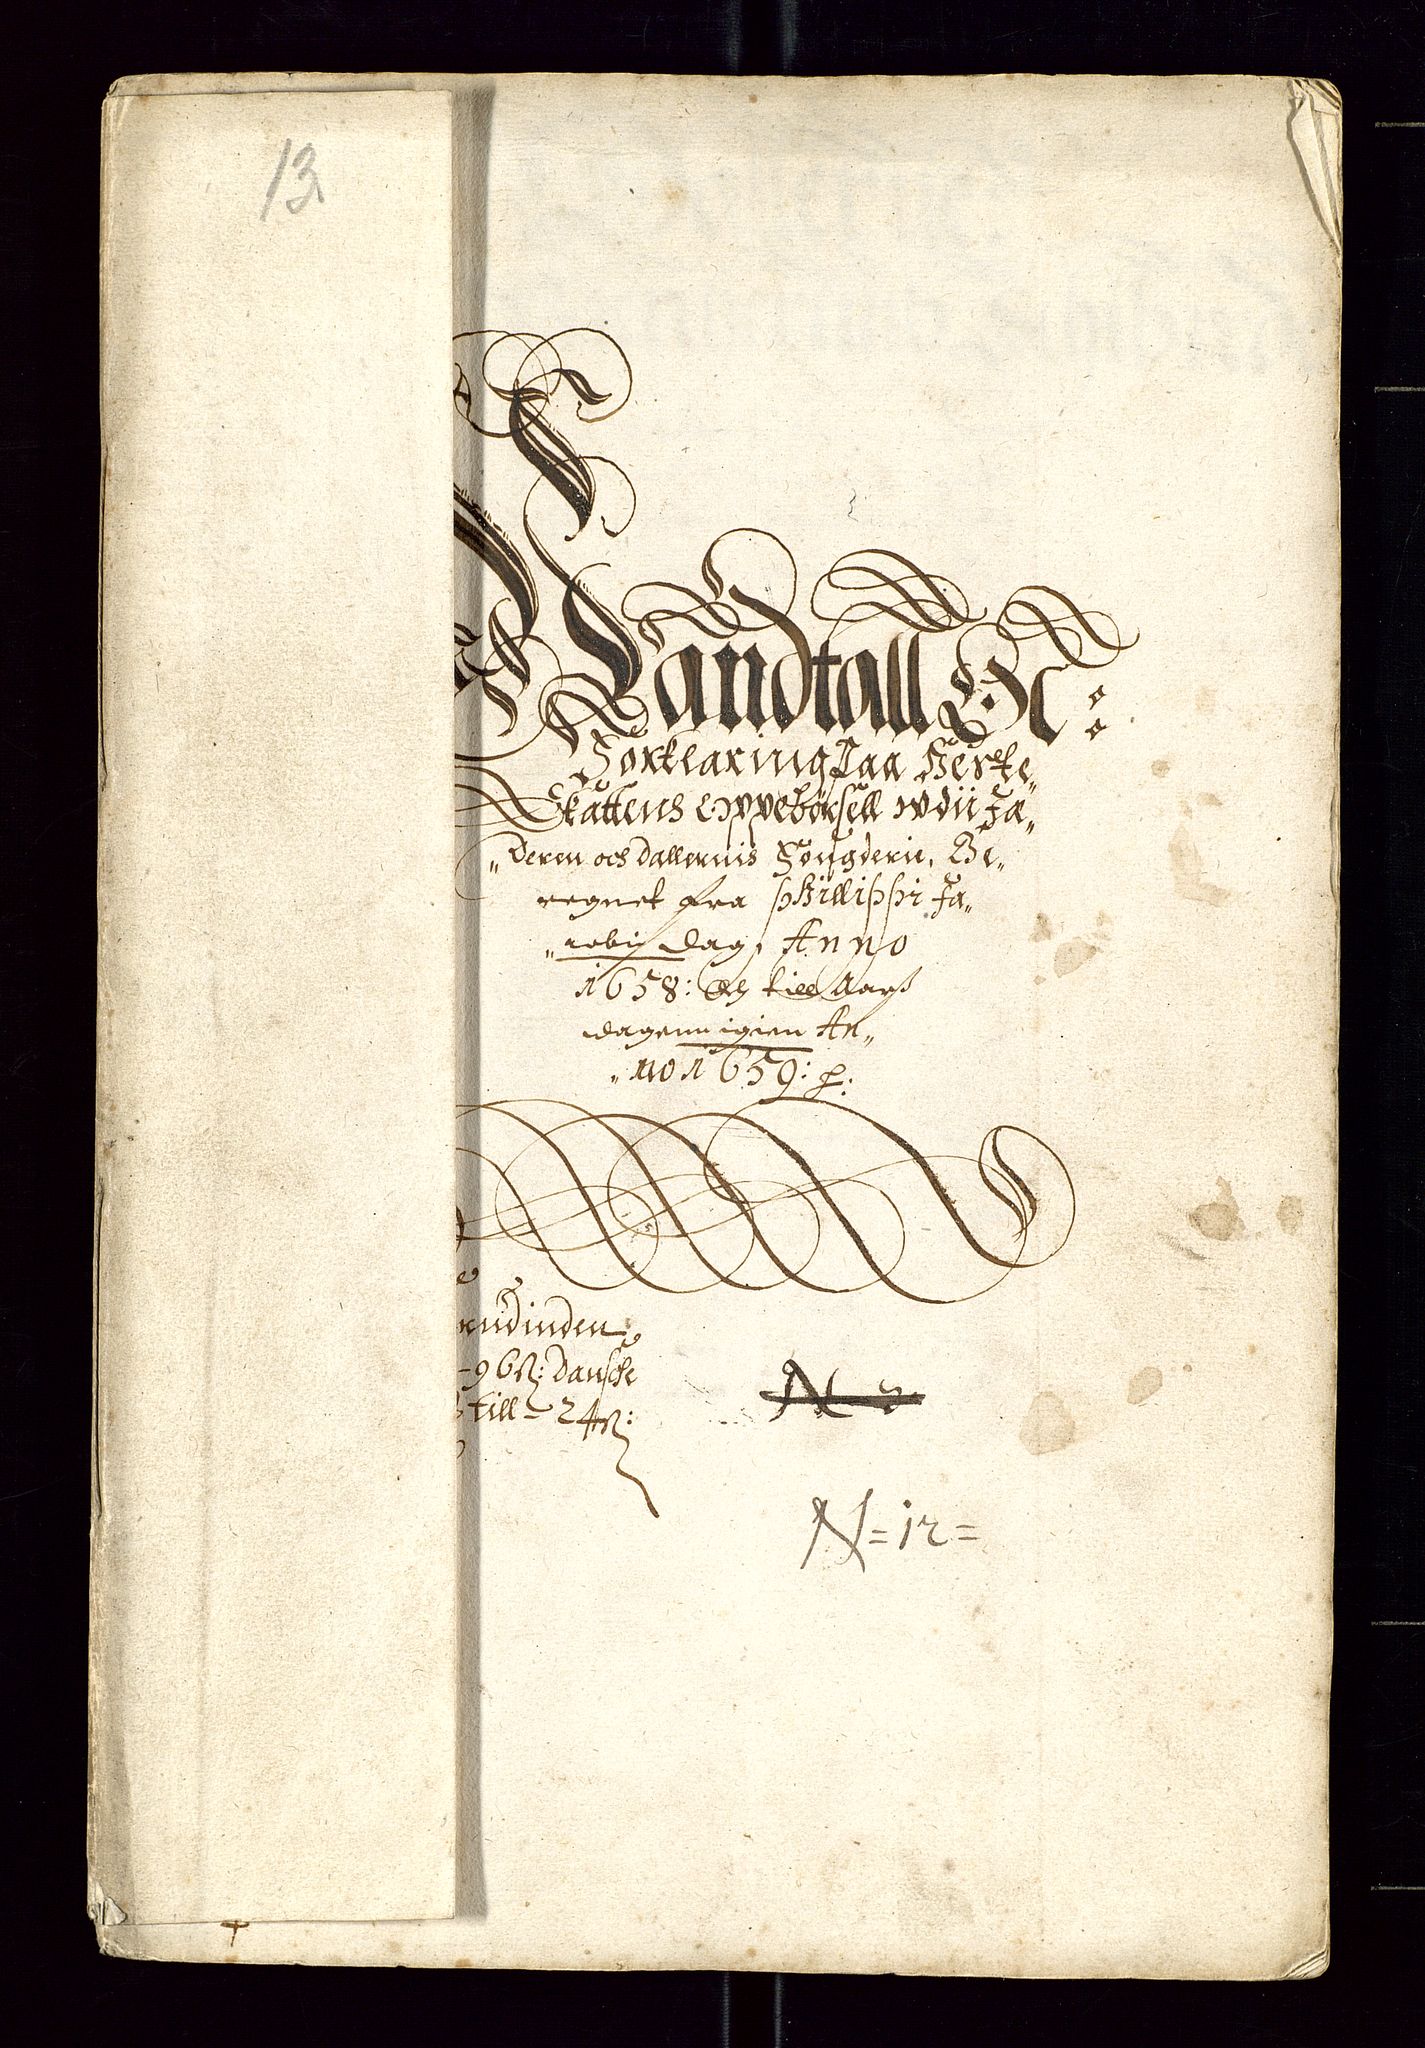 13
Mandtall Oc
Forklaring Paa Heste
Skattens Oppebørsell udii Jæ„
„deren och Dallernis Fougderie, Be„
regnet fra Philippi Ja„
„cobi Dag, Anno
1658: Och till Aarß
dagenn igien An„
„no 1659:
rudinden
96 ß: Dansche
till - 24 ß:
N 2
N = 12 =